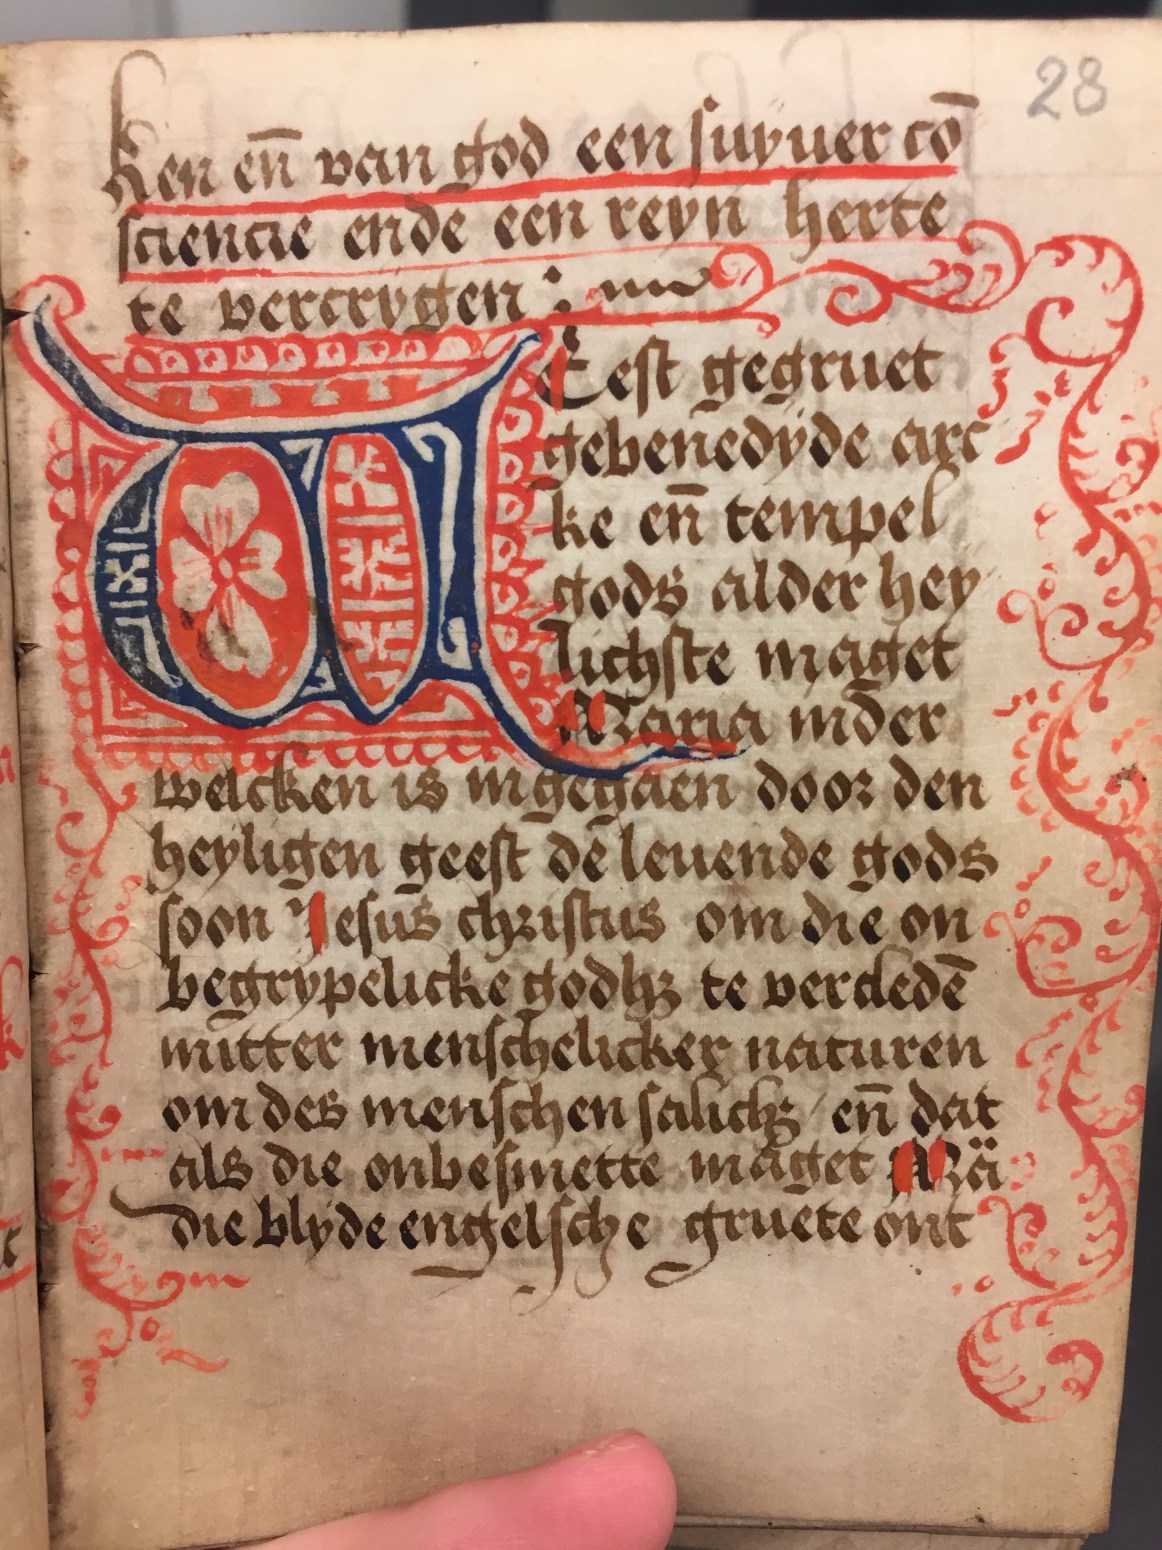 28
ken en̄ van god een suyuer cō
sciencie ende een reyn herte
te vercrygen :
WEest gegruet
gebenedyde arc
ke en̄ tempel
gods alder hey
lichste maget
Maria inder
welcken is ingegaen door den
heyligen geest dē leuende gods
soon Jesus christus om die on
begrypelicke godhꝫ te vercledē
mitter menschelicker naturen
om des menschen salichꝫ / en̄ dat
als die onbesmette maget Mä
die blyde engelsche gruete ont